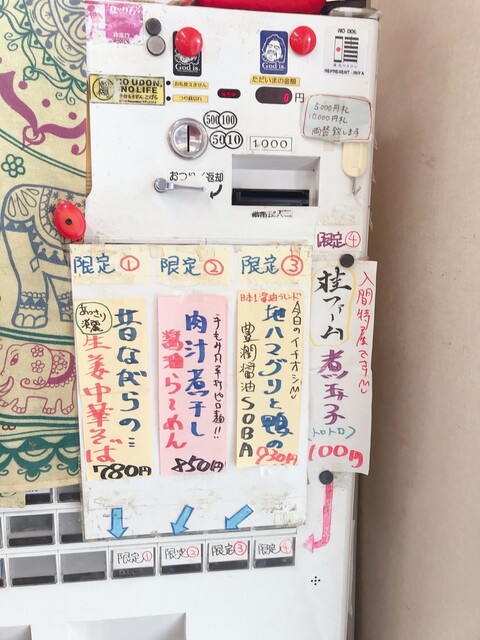 God is.
God is.
NO 006
GO UDON,
NO LIFE
ただいまの金額
0 円
5000円札
10,000円札
両替致します
500 100
50 10
1,000
おつり/返却
限定①
限定②
限定③
限定④
あっさり
昔ながらの
生姜中華そば
780円
手もみ只平打ピロ麺!!
肉汁煮干し
醤油らーめん
850円
日本一醤油ブレンド
今日のイチオシ
地ハマグリと鴨の
豊潤醤油SOBA
930円
入間特産です
桂ファーム
煮玉子
(トロトロ)
100円
限定①
限定②
限定③
限定④